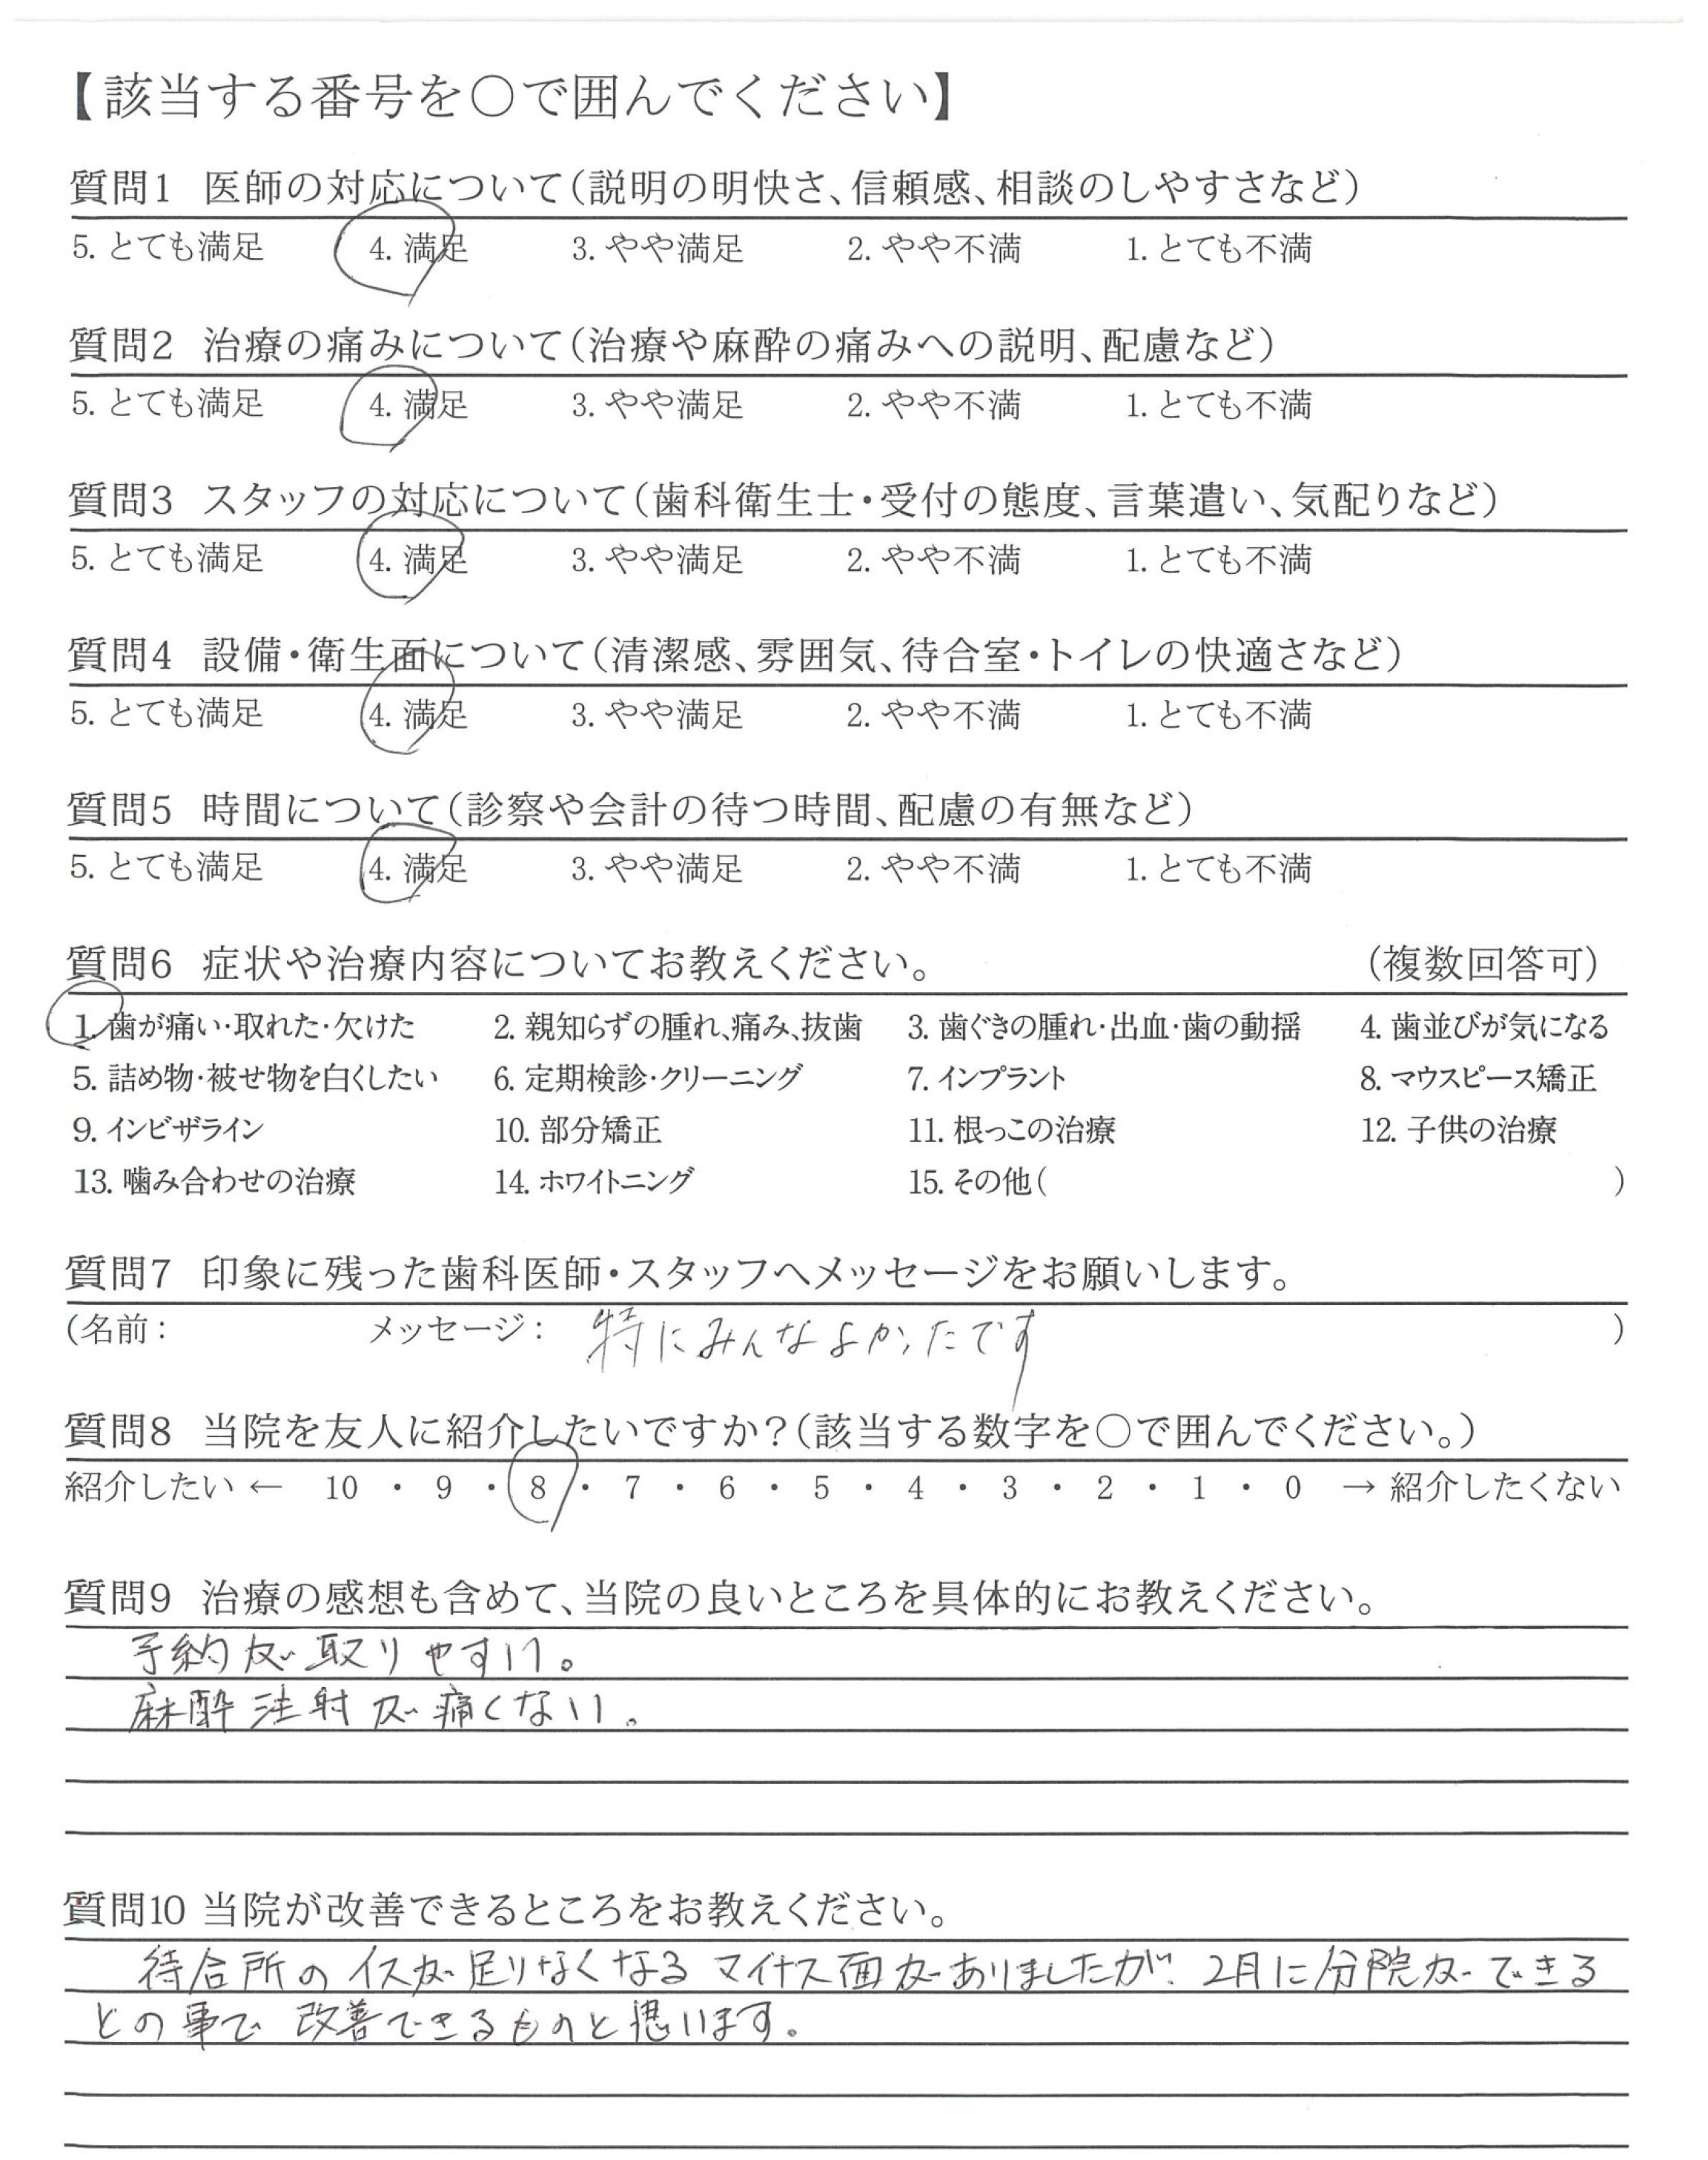 【該当する番号を〇で囲んでください】
質問1 医師の対応について(説明の明快さ、信頼感、相談のしやすさなど)
5. とても満足 4. 満足 3. やや満足 2. やや不満 1. とても不満
質問2 治療の痛みについて(治療や麻酔の痛みへの説明、配慮など)
5. とても満足 4. 満足 3. やや満足 2. やや不満 1. とても不満
質問3 スタッフの対応について(歯科衛生士・受付の態度、言葉遣い、気配りなど)
5. とても満足 4. 満足 3. やや満足 2. やや不満 1. とても不満
質問4 設備・衛生面について(清潔感、雰囲気、待合室・トイレの快適さなど)
5. とても満足 4. 満足 3. やや満足 2. やや不満 1. とても不満
質問5 時間について(診察や会計の待つ時間、配慮の有無など)
5. とても満足 4. 満足 3. やや満足 2. やや不満 1. とても不満
質問6 症状や治療内容についてお教えください。 (複数回答可)
1. 歯が痛い・取れた・欠けた 2. 親知らずの腫れ、痛み、抜歯 3. 歯ぐきの腫れ・出血・歯の動揺 4. 歯並びが気になる
5. 詰め物・被せ物を白くしたい 6. 定期検診・クリーニング 7. インプラント 8. マウスピース矯正
9. インビザライン 10. 部分矯正 11. 根っこの治療 12. 子供の治療
13. 噛み合わせの治療 14. ホワイトニング 15. その他( )
質問7 印象に残った歯科医師・スタッフへメッセージをお願いします。
(名前: メッセージ: 特にみんなよかったです )
質問8 当院を友人に紹介したいですか?(該当する数字を〇で囲んでください。)
紹介したい ← 10 ・ 9 ・ 8 ・ 7 ・ 6 ・ 5 ・ 4 ・ 3 ・ 2 ・ 1 ・ 0 → 紹介したくない
質問9 治療の感想も含めて、当院の良いところを具体的にお教えください。
予約が取りやすい。
麻酔注射が痛くない。
質問10 当院が改善できるところをお教えください。
待合所のイスが足りなくなるマイナス面がありましたが、2月に分院ができる
との事で改善できるものと思います。